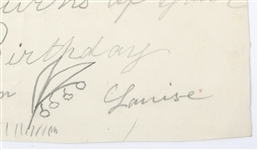 urns of your
Birthday
n
Louise.